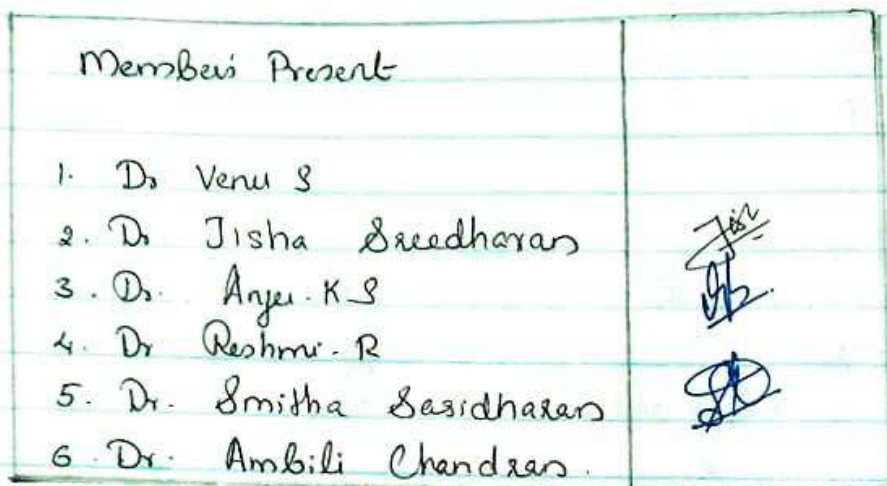 Members Present
1. Dr Venu S
2. Dr Jisha Sreedharan
3. Dr. Anju. K S
4. Dr Reshmi. R
5. Dr. Smitha Sasidharan
6. Dr. Ambili Chandran.